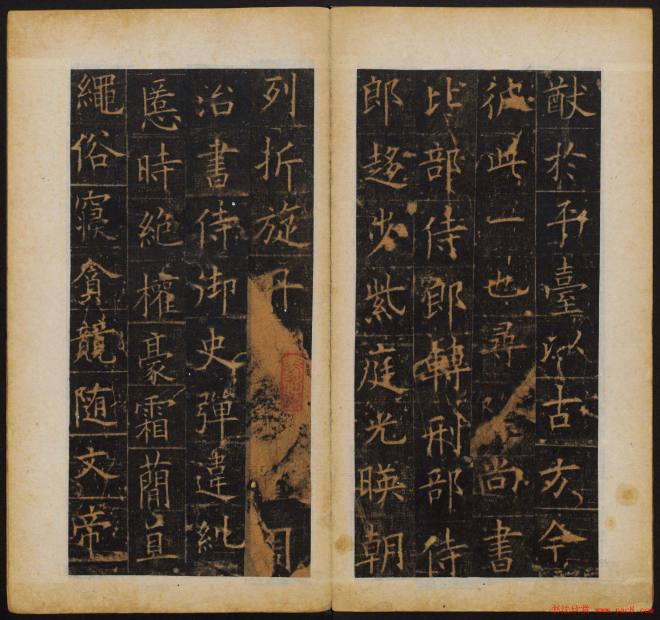 猷於平臺以古方今
彼此一也尋 尚書
比部侍郎轉刑部侍
郎趍步紫庭光暎朝
列折旋丹 司
治書侍御史彈違糺
慝時絶權豪霜蕳直
繩俗寢貪競随文帝